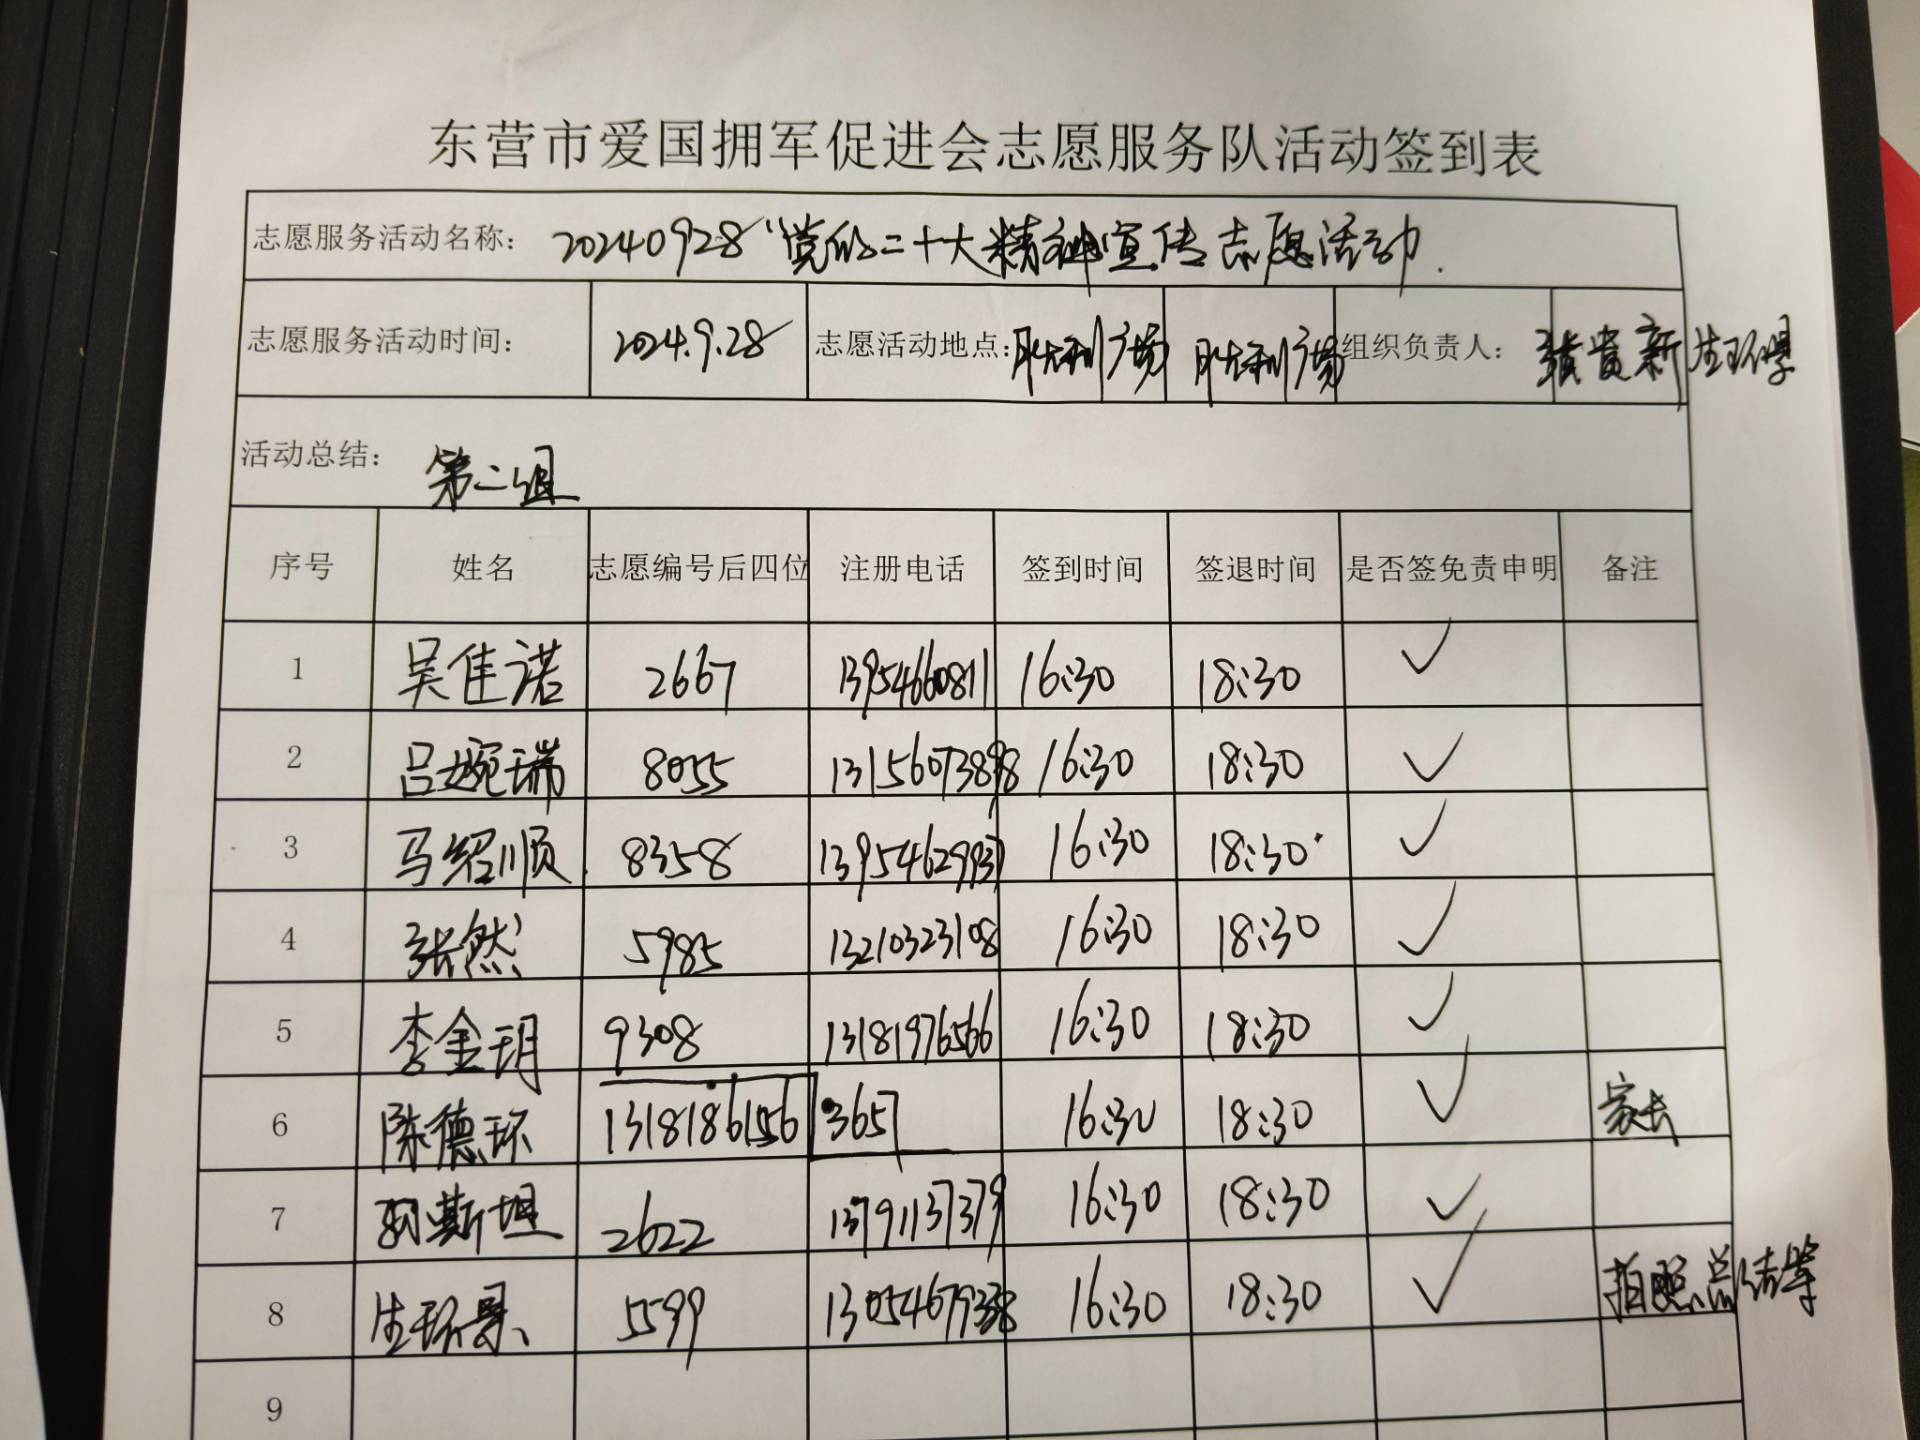 东营市爱国拥军促进会志愿服务队活动签到表
志愿服务活动名称： 20240928“党的二十大精神宣传志愿活动.
志愿服务活动时间： 2024.9.28 志愿活动地点：胜利广场 胜利广场 组织负责人： 张贵新 生环景
活动总结： 第二组
序号 姓名 志愿编号后四位 注册电话 签到时间 签退时间 是否签免责申明 备注
1 吴佳诺 2667 13954660811 16:30 18:30 ✓
2 吕婉瑞 8055 13156073898 16:30 18:30 ✓
3 马绍顺 8358 16:30 18:30 ✓
4 张然 5985 13210323108 16:30 18:30 ✓
5 李金玥 9308 13181976566 16:30 18:30 ✓
6 陈德环 1318186156 3657 16:30 18:30 ✓ 家长
7 斯坦 2622 13791137379 16:30 18:30 ✓
8 生环景 5599 16:30 18:30 ✓ 拍照总结等
9